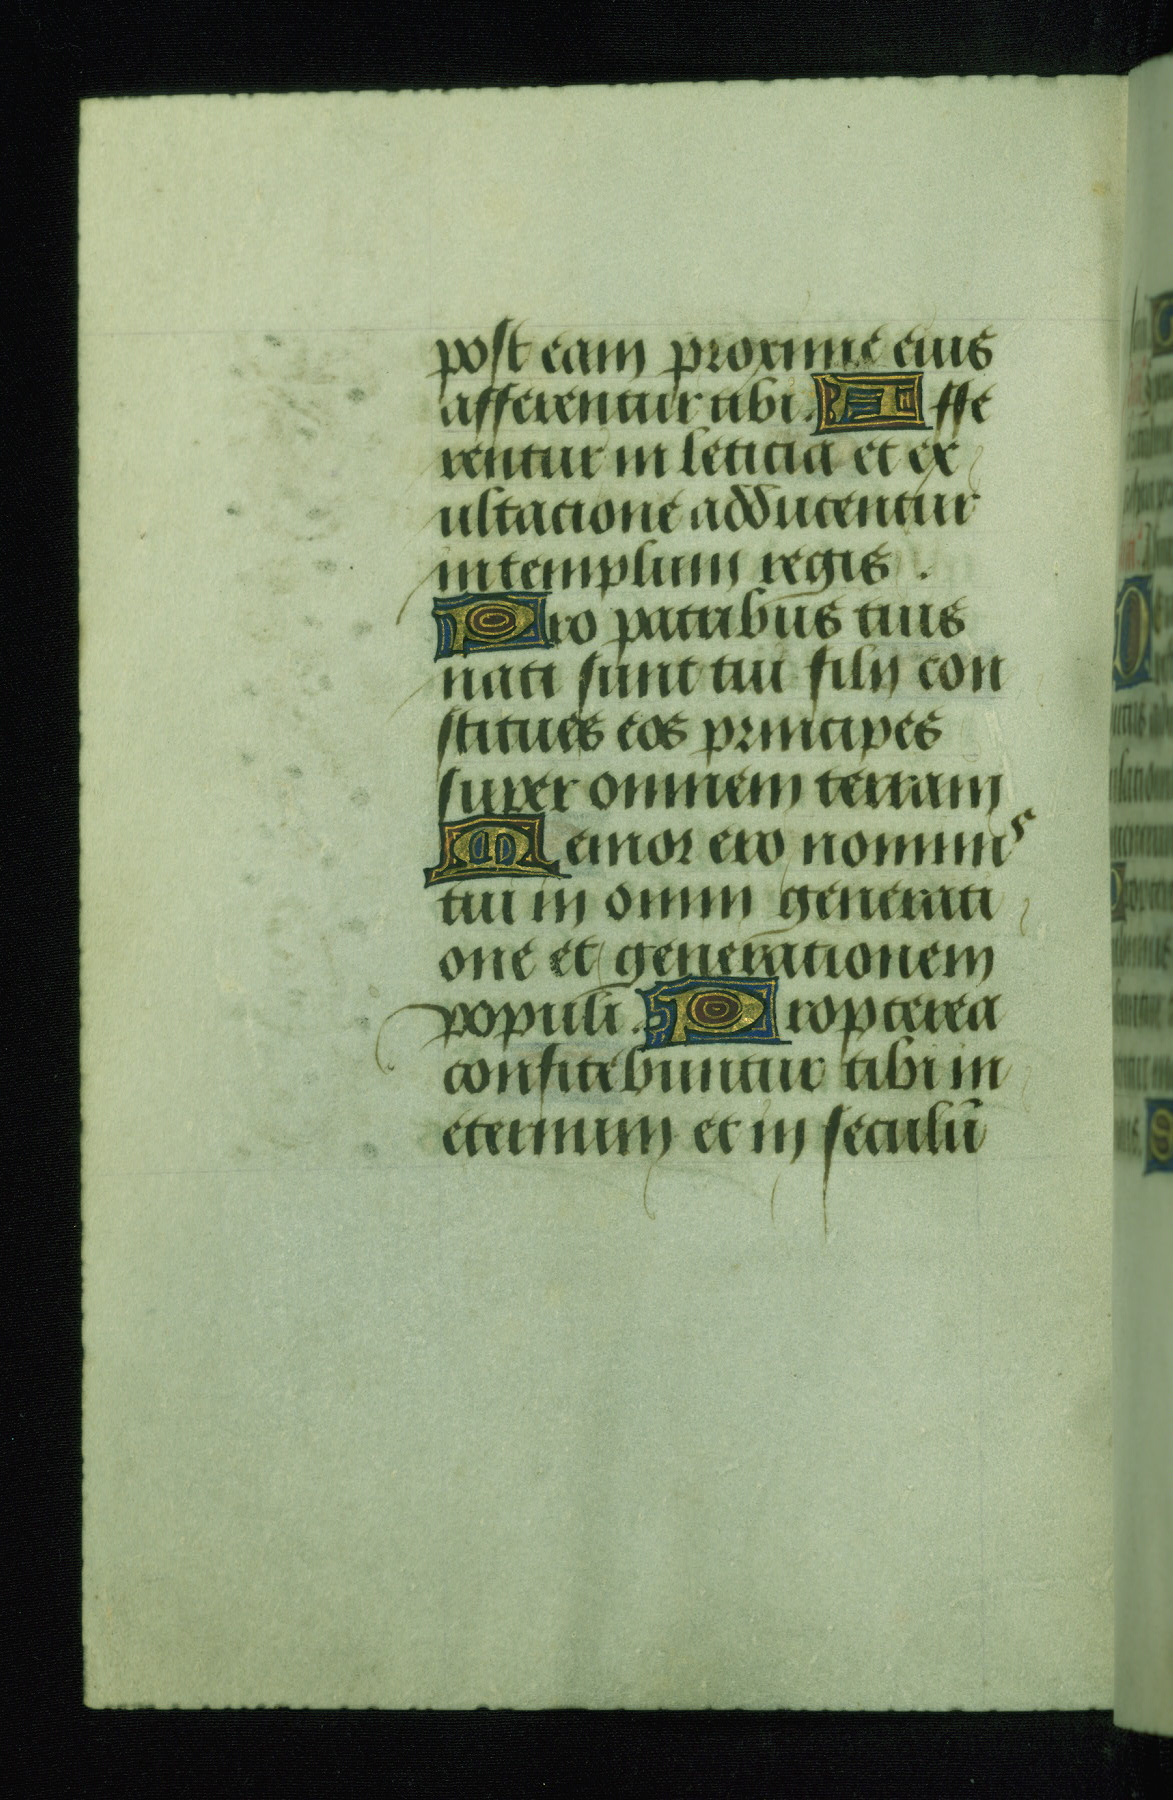 post eam proxime eius
afferentur tibi. Affe
rentur in leticia et ex
ultacione adducentur
in templum regis .
Pro patribus tuis
nati sunt tui filij con
stitues eos principes
super omnem terram
Memor ero nominis
tui in omni generati
one et generationem
populi. Propterea
confitebuntur tibi in
eternum et in seculū